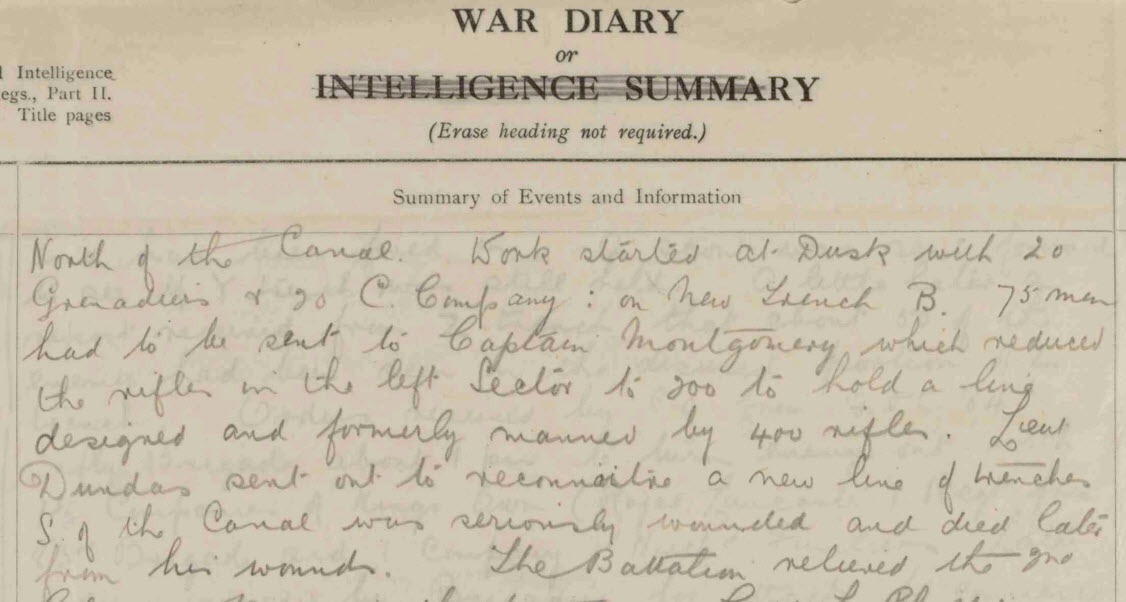 WAR DIARY
or
INTELLIGENCE SUMMARY
(Erase heading not required.)
l Intelligence
egs., Part II.
Title pages
Summary of Events and Information
North of the Canal. Work started at Dusk with 20
Grenadiers & 20 C. Company : on New Trench B. 75 men
had to be sent to Captain Montgomery which reduced
the rifles in the left Sector to 200 to hold a line
designed and formerly manned by 400 rifles. Lieut
Dundas sent out to reconnoitre a new line of trenches
S. of the Canal was seriously wounded and died later
from his wounds. The Battalion relieved the 2nd